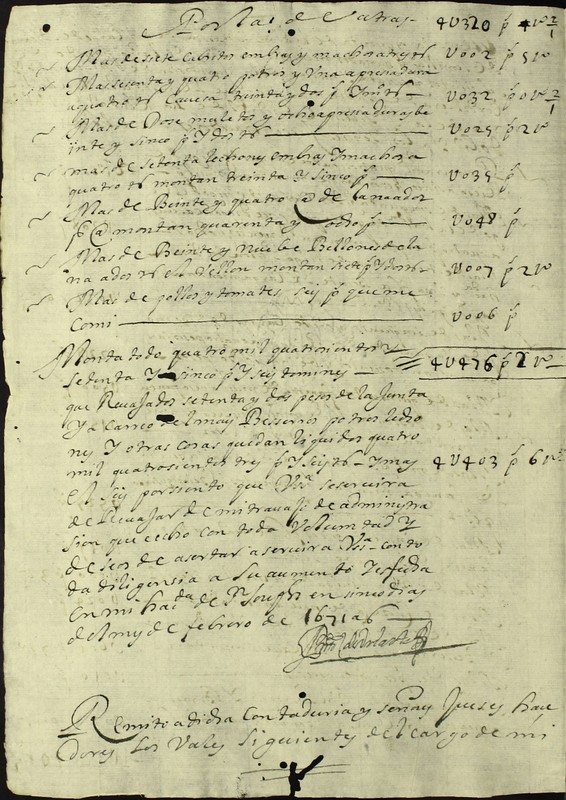 Por la de atras 4U320 p 4
Mas de siete cabritos embras y machos a tres U002 p 5
Mas sesenta y quatro potros y Una apresiadura
a quatro rs Cavesa treinta y dos p U032 p
Mas de Dose muletos y ocho apresiadura be
inte y sinco p y dos rs U025 p 2
mas de setenta lechones embras y machos a
quatro rs montan treinta y sinco p U035 p
Mas de Beinte y quatro @ de lana a dos
p @ montan quarenta y ocho p U048 p
Mas de Beinte y Nuebe Bellones de la
na a dos rs el Vellon montan siete p y dos rs U007 p 2
Mas de pollos y tomates, seis p que me
Comi U006 p
Monta todo quatro mil quatrosientos y 4U476 p 2
Setenta y sinco p y seis tomines
que Revajados setenta y dos pesos de la Junta
y acarreo de Beserros potros lecho
nes y otras cosas quedan liquidos quatro
mil quatrosientos tres p y seis rs y mas 4U403 p 6
el seis por siento que Vsa. se servira
de Revajar de mi travajo de administra
sion que e echo con toda Voluntad y
deseos de asertar a servir a Vsa. con to
da diligensia a Su aumento es fecha
en mi hasda. de Joseph en sinco dias
del mes de febrero de 1671 as
Remite a dicha Contaduria y señores Jueses, hase
dores, los Vales siguientes del cargo de mi